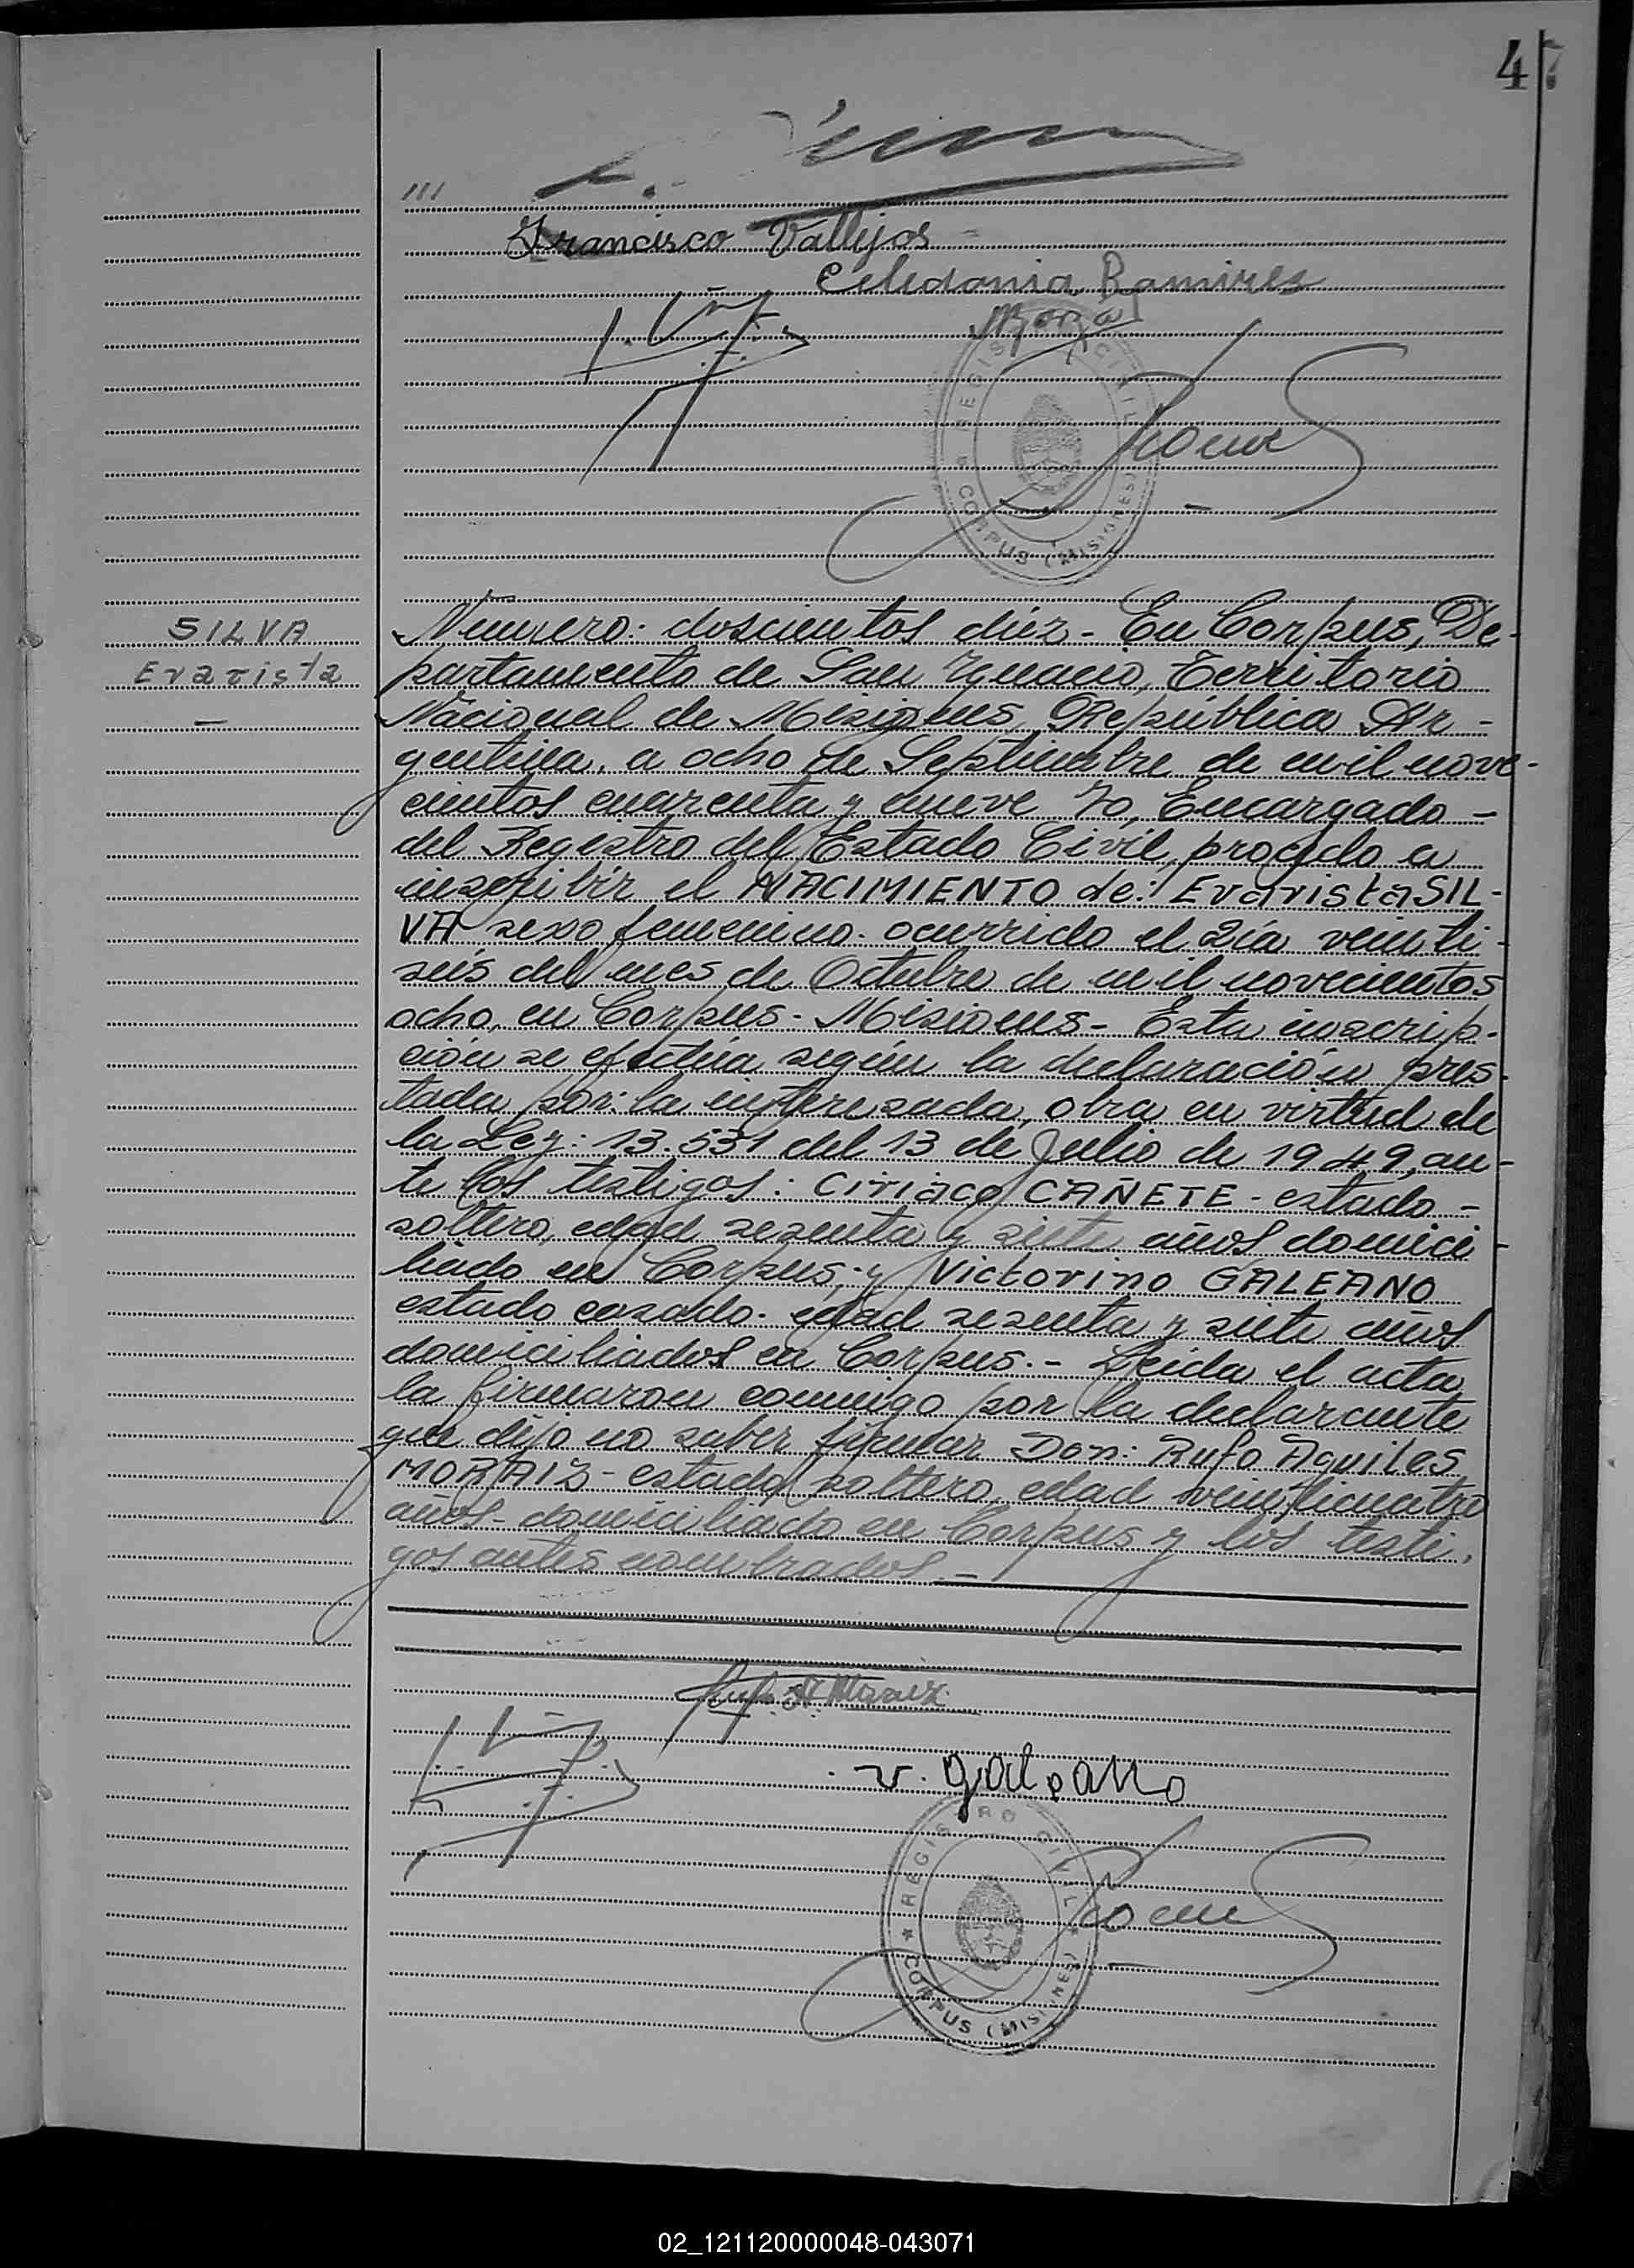 47
///
Francisco Vallejos
Celedonia Ramires
REGISTRO CIVIL
CORPUS (MISIONES)
SILVA
Evarista
Número: doscientos diéz - En Corpus, De-
partamento de San Ygnacio, Territorio
Nacional de Misiones, República Ar-
gentina, a ocho de Septiembre de mil nove-
cientos cuarenta y nueve Yo, Encargado -
del Registro del Estado Civil, procedo a
inscribir el NACIMIENTO de: Evarista SIL-
VA sexo femenino. ocurrido el día veinti-
seis del mes de Octubre de mil novecientos
ocho, en Corpus - Misiones - Esta inscrip-
ción se efectúa según la declaración pres-
tada por: la interesada, obra en virtud de
la Ley: 13.531 del 13 de Julio de 1949, an-
te los testigos: Ciriaco CAÑETE - estado -
soltero, edad sesenta y siete años domici-
liado en Corpus; y Victorino GALEANO
estado casado. edad sesenta y siete años
domiciliados en Corpus. - Leida el acta
la firmaron conmigo por la declarante
que dijo no saber firmar Don: Rufo Aquiles
MORAIZ - estado soltero, edad veinticuatro
años - domiciliado en Corpus y los testi-
gos antes nombrados. -
Rufo A. Moraiz
v. galeano
REGISTRO CIVIL
CORPUS (MISIONES)
02_121120000048-043071